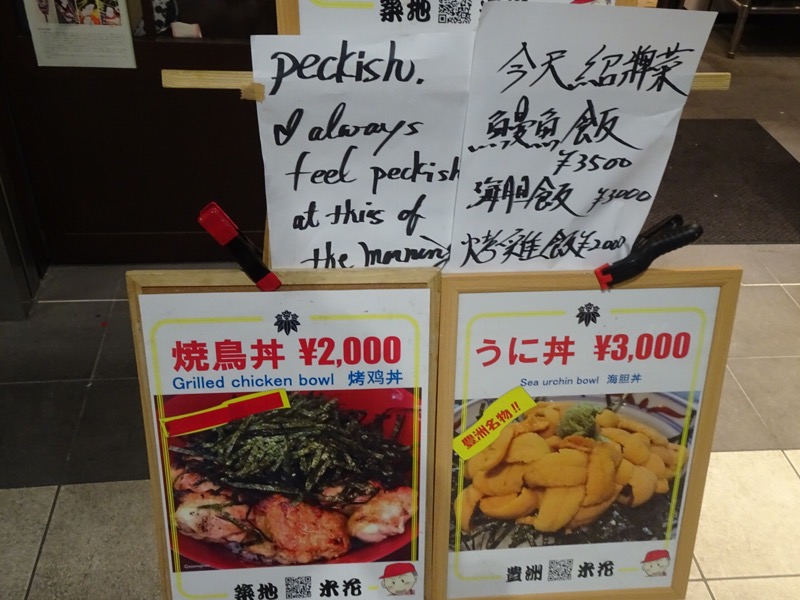 築地
peckish.
I always
feel peckish
at this of
the morning
今天紹牌菜
鰻魚飯
¥3500
海胆飯 ¥3000
烤雞飯¥2000
焼鳥丼 ¥2,000
Grilled chicken bowl 烤鸡丼
築地 米花
うに丼 ¥3,000
Sea urchin bowl 海胆丼
豊洲名物!!
豊洲 米花